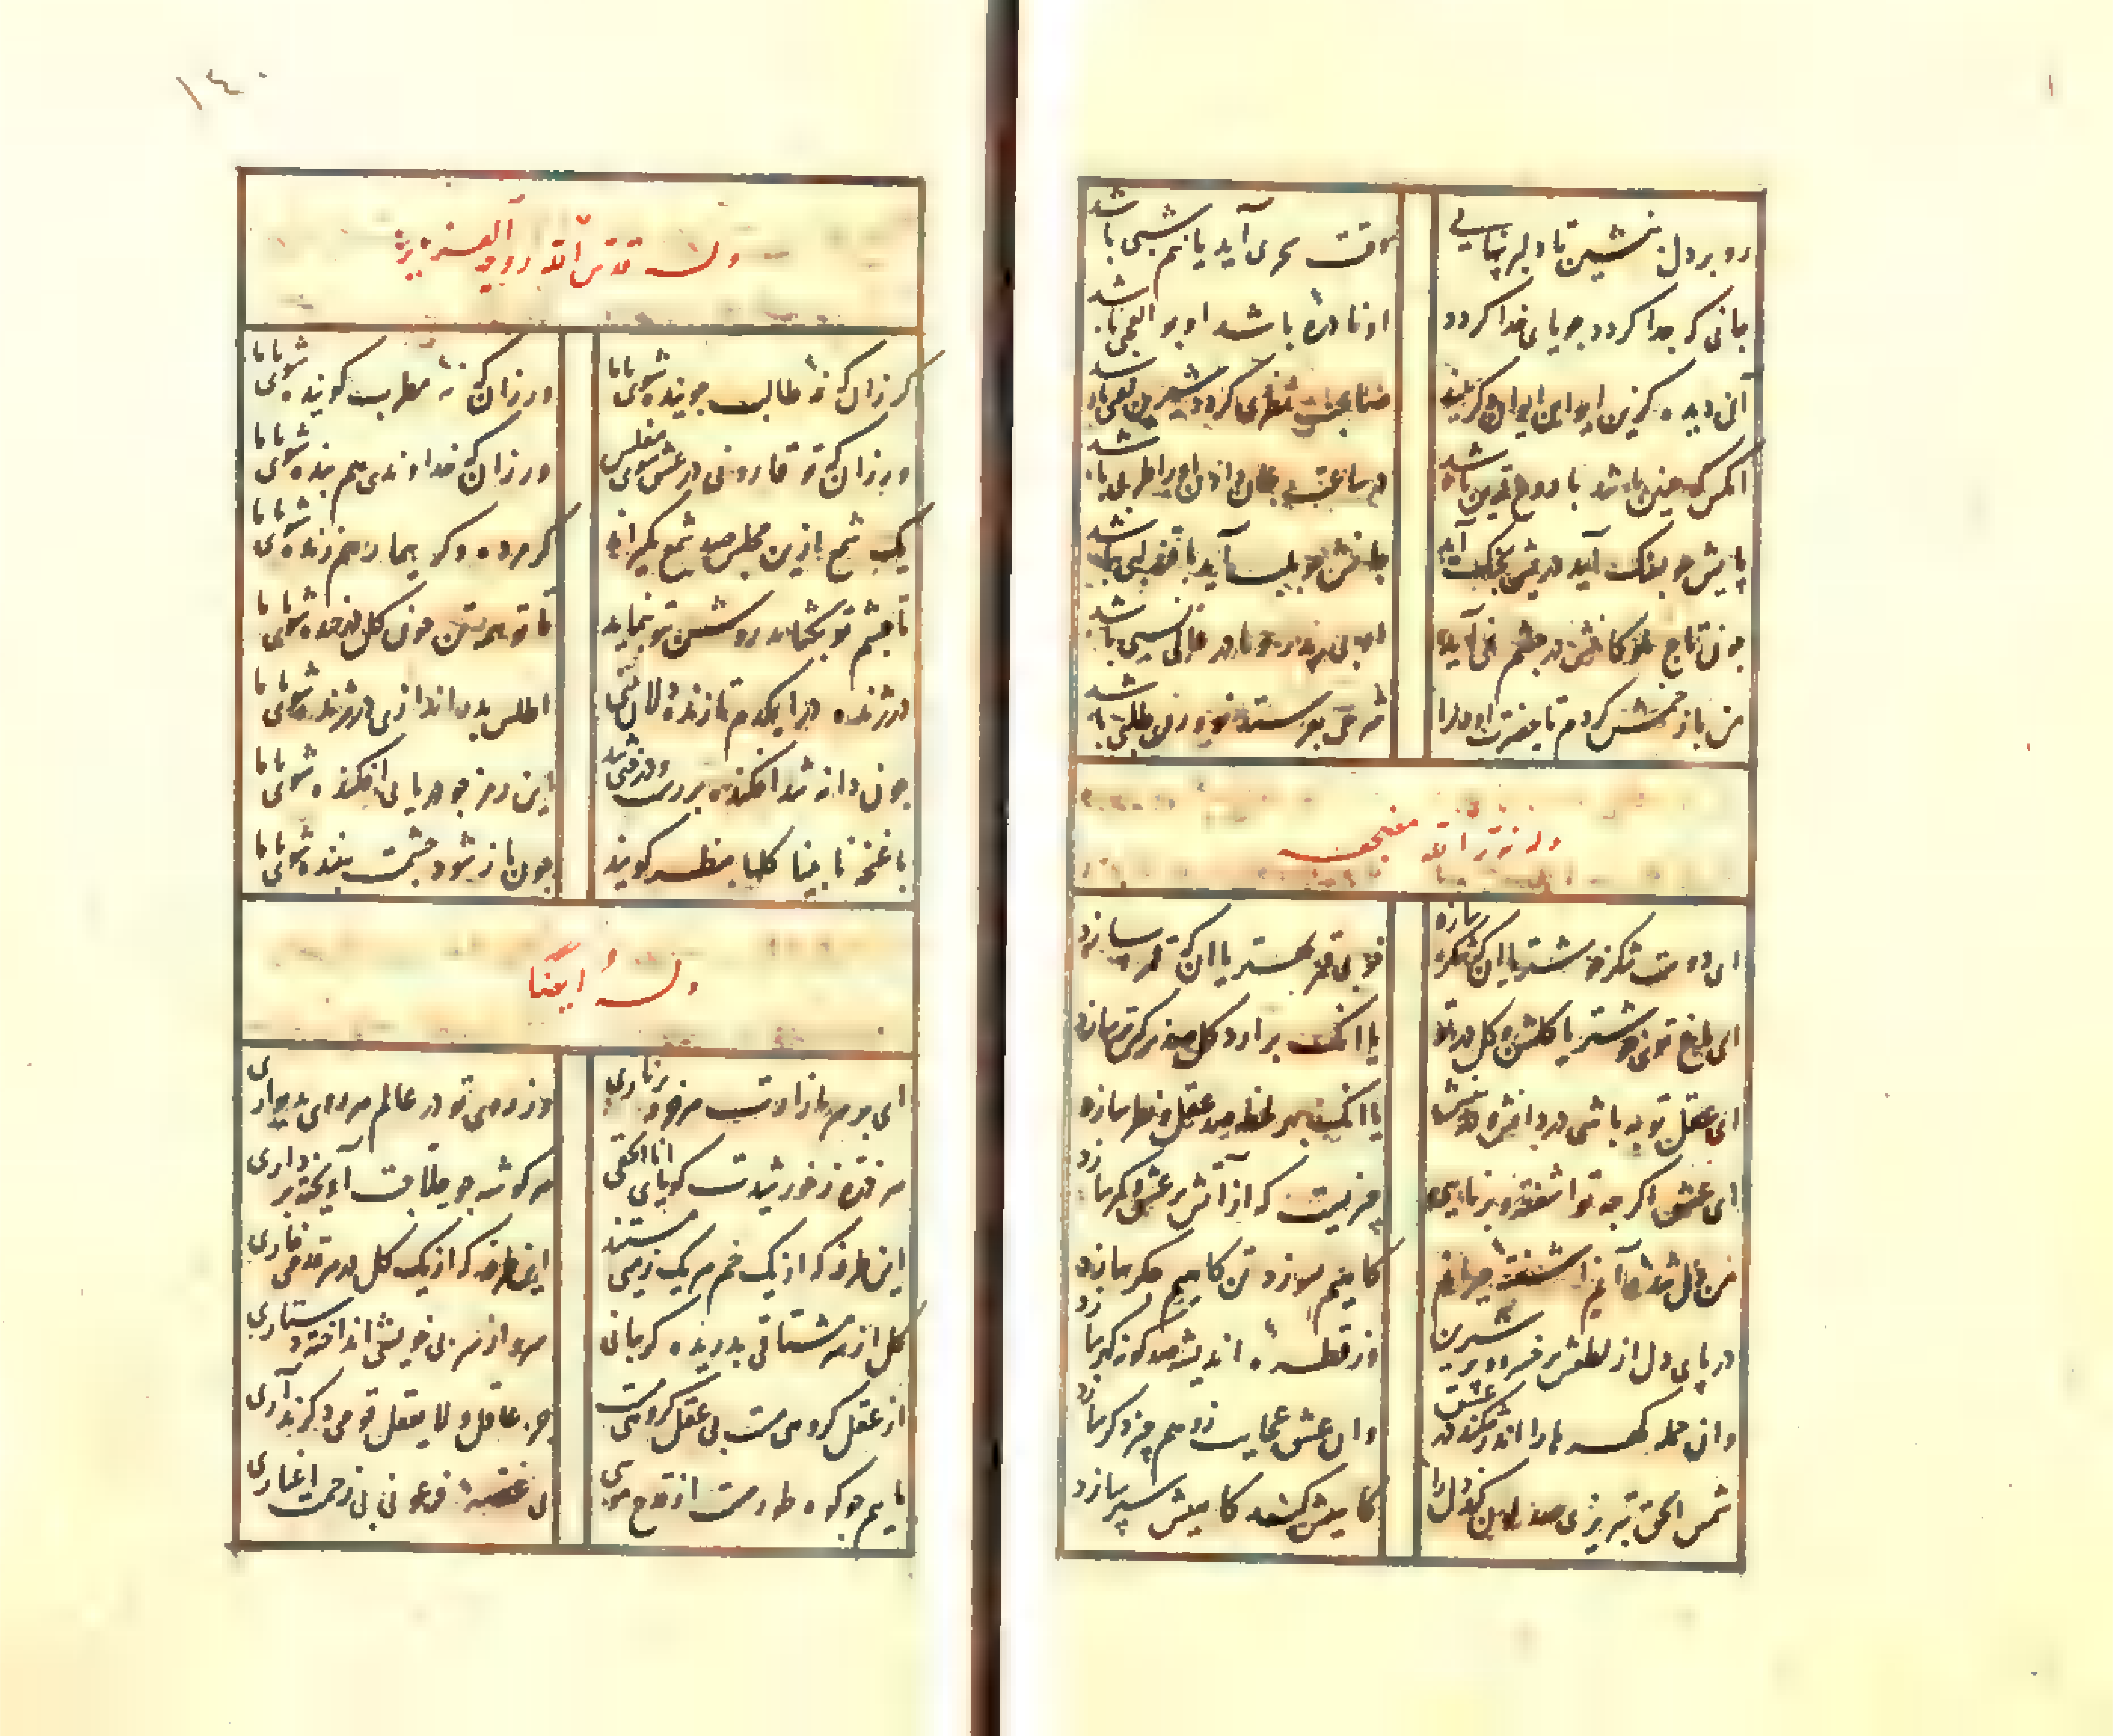 رو بر دل بنشین تا دلبر پنهانی وقت سحری آید یا نیم شبی باشد
جانی که جدا کردد جویای خدا کردد او نادره باشد او بو العجبی باشد
آن دیده کزین ایوان ایوان دکر بیند صاحب نظری کردد شیرین لقبی باشد
انکس که چنین باشد با روح قرین باشد در ساعت جان دادن او را طربی باشد
پایش چو بسنک آید دریش بچنک آید جانش چو بلب آید با قندلبی باشد
چون تاج ملوکانش در چشم نمی آید او بی پدر و مادر عالی نسبی باشد
من باز خمش کردم تا حضرت او دلرا شرحی بفرستد طلبی باشد
وله نور الله مضجعه
ای دوست شکر خوشتر یا ان که شکر سازد خوبی قمر بهتر یا ان که قمر سازد
ای باغ توی خوشتر یا کلشن و کل در تو یا انک برارد کل صد نرکس تر سازد
ای عقل تو به باشی در دانش و در بینش یا انک بهر لحظه صد عقل و نظر سازد
ای عشق اکر چه تو اشفته و پر تابی چیزیست که از آتش بر عشق کمر سازد
من آنم اشفته و حیرانم کاهیم بسوزد تن کاهیم جکر سازد
دریای دل از لطفش پر خسرو پر شیرین وز قطره اندیشه صد کونه کهر سازد
وان جمله کهرها را اندر شکند در عشق وان عشق عجایب زو هم چیز دکر سازد
شمس الحق تبریزی صد کونه کند دل را کاهیش کند کاهیش سپر سازد
١٤٠
وله قدس الله روحه العزیز
کر زان که نه طالب جوینده شوی با ما ور زان که نه مطرب کوینده شوی با ما
ور زان که تو قارونی در عشق شوی مفلس ور زان که خداوندی هم بنده شوی با ما
یک شمع ازین مجلس صد شمع بکیراند کر مرده و کر بیمار هم زنده شوی با ما
تا چشم تو بکشاید روشن بتو بنماید تا تو همه تن چون کل در خنده شوی با ما
در ژنده درا یکدم تا زنده دلان بینی اطلس بدر اندازی در ژنده شوی با ما
چون دانه شد افکنده بر رست و درختی شد این رمز چو دریابی افکنده شوی با ما
با غنچه نابینا کلها کویند چون باز شود چشمت بیننده شوی با ما
وله ایضا
ای برده تو در عالم
هر ذره ز خورشیدت کویای انا الحقی هر کوشه چو حلاجت آویخته بر داری
این طرفه که از یک خم هر یک ز میی مستند این طرفه که از یک کل در هر قدمی خاری
کل از سر مشتاقی بدریده کریبانی سرو از سر بی خویشی انداخته دستاری
از عقل کروهی مست بی عقل کروهی مست جز عاقل و لا یعقل قومی دکرند آری
ماییم چو کوه طور مست از قدح موسی بی غصه فرعونی بی زحمت اغیاری